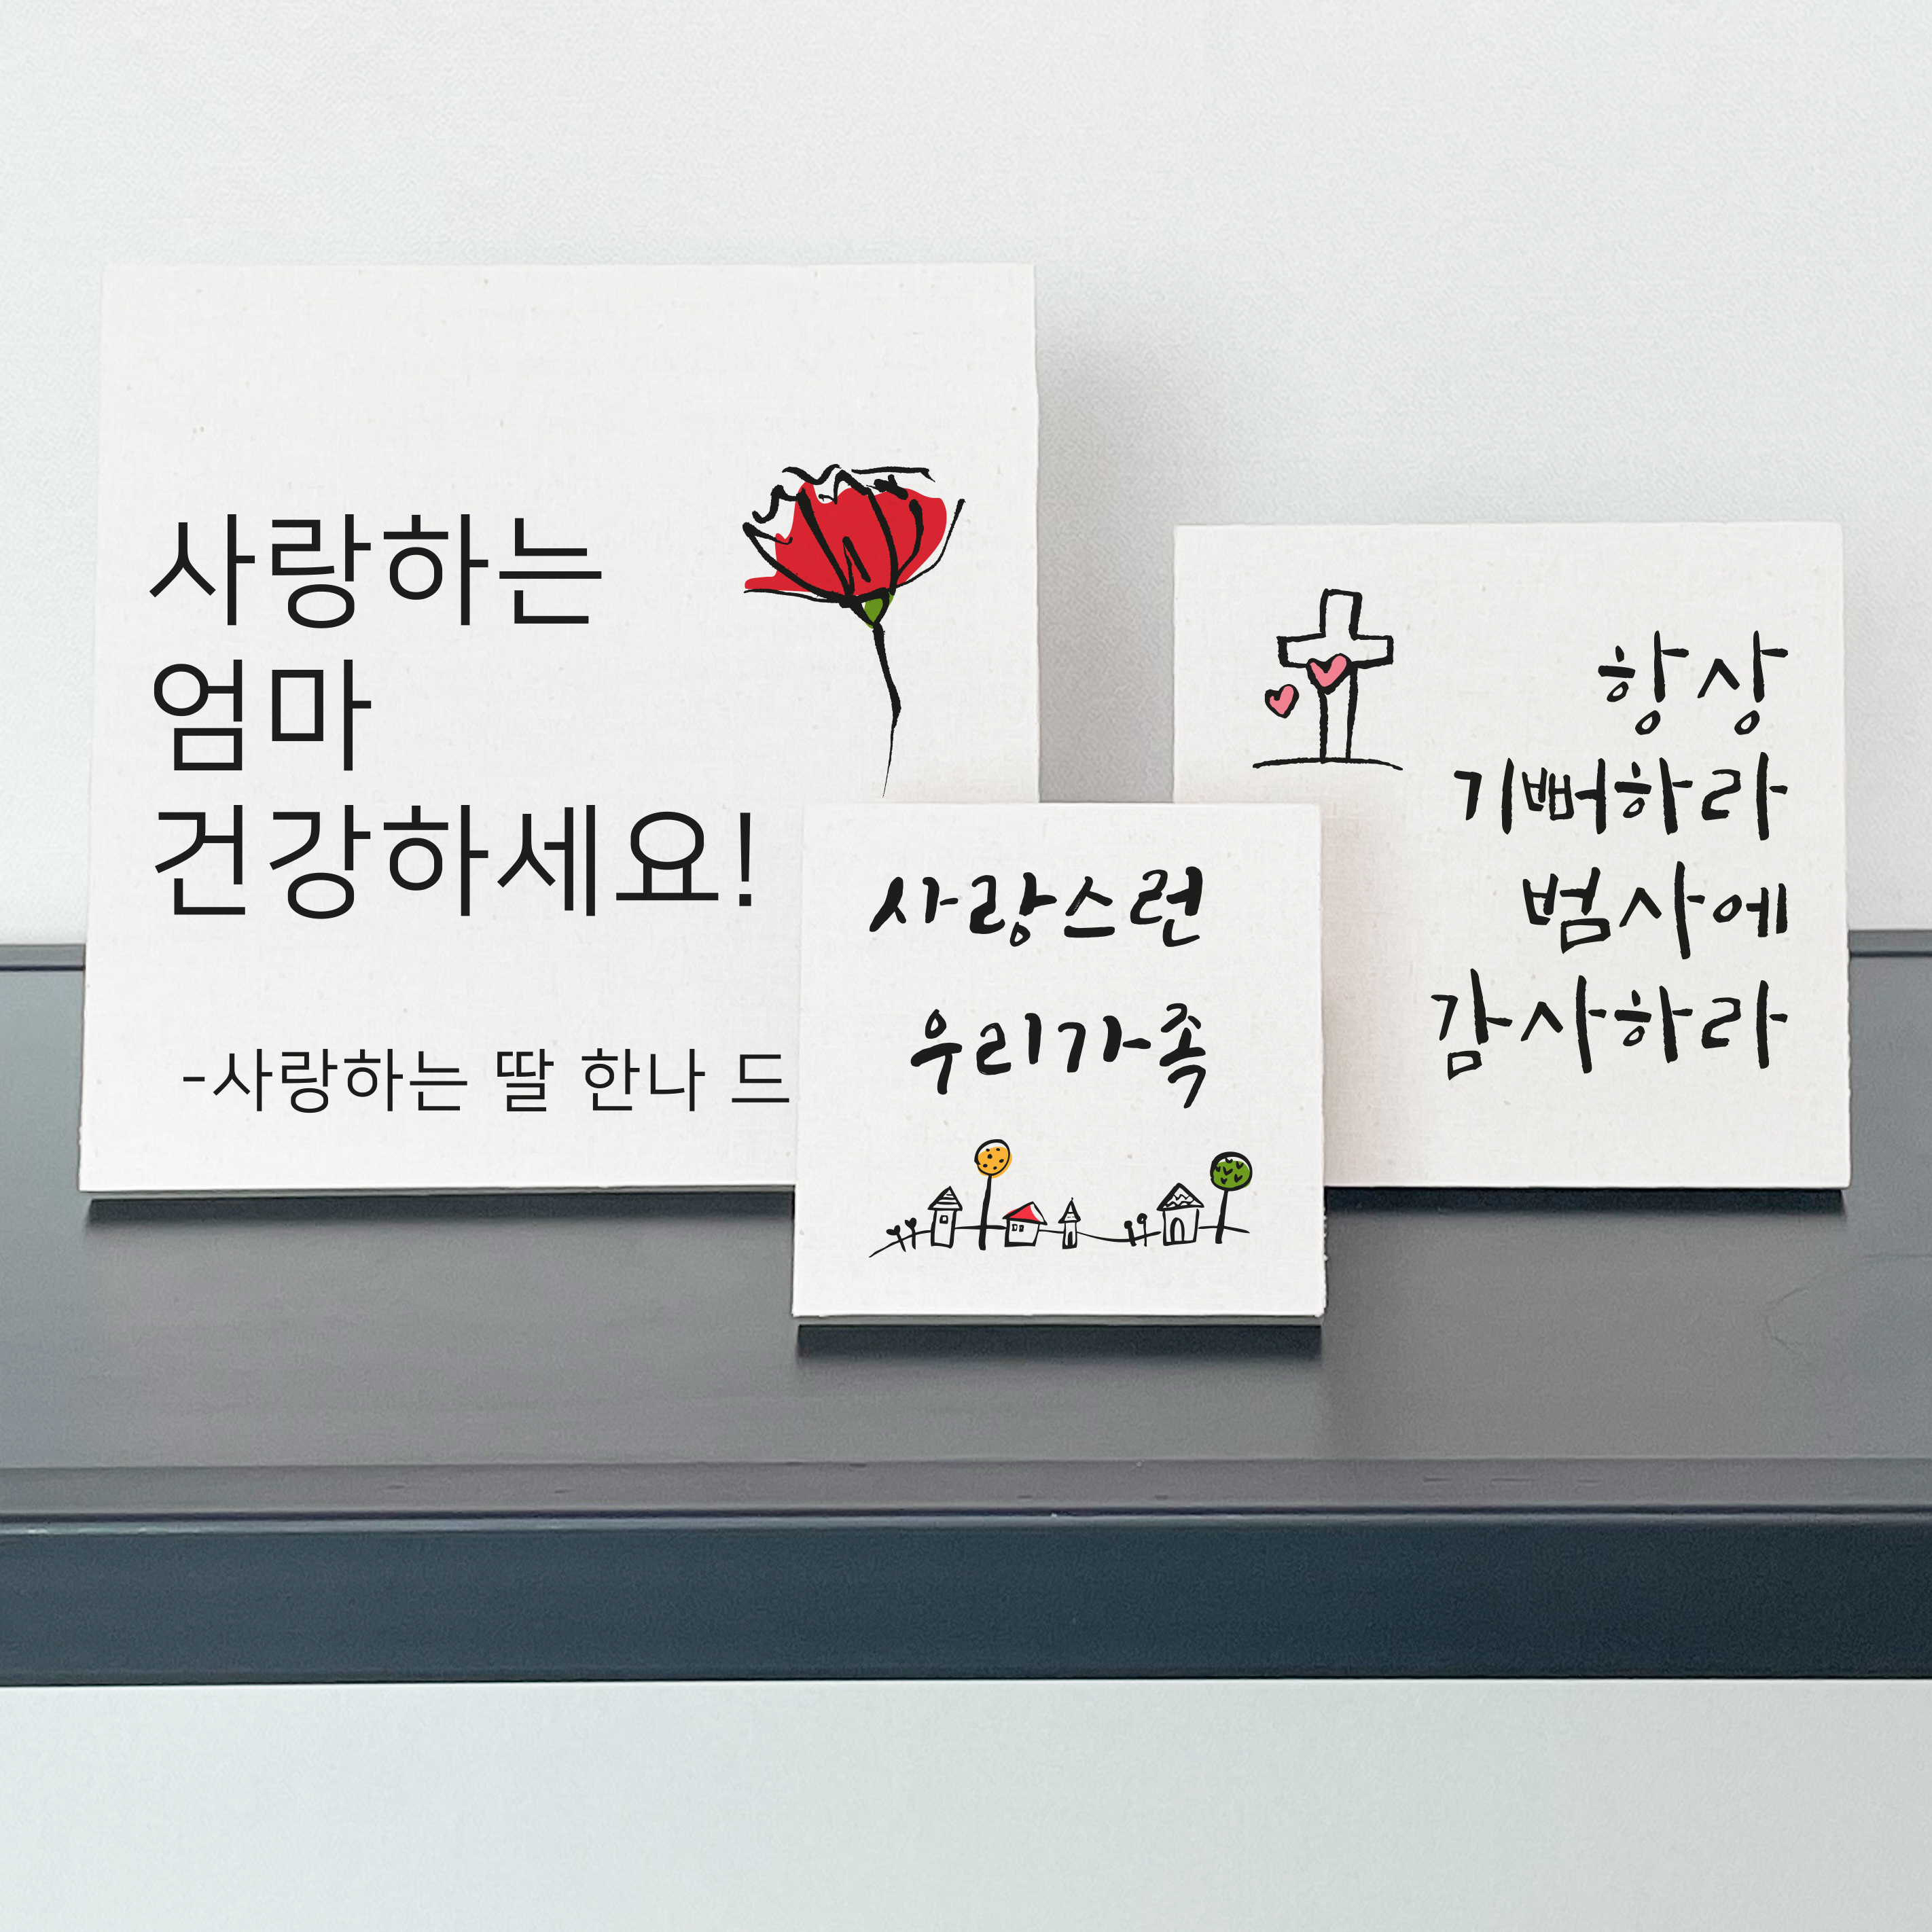 사랑하는
엄마
건강하세요!
-사랑하는 딸 한나 드
사랑스런
우리가족
항상
기뻐하라
범사에
감사하라